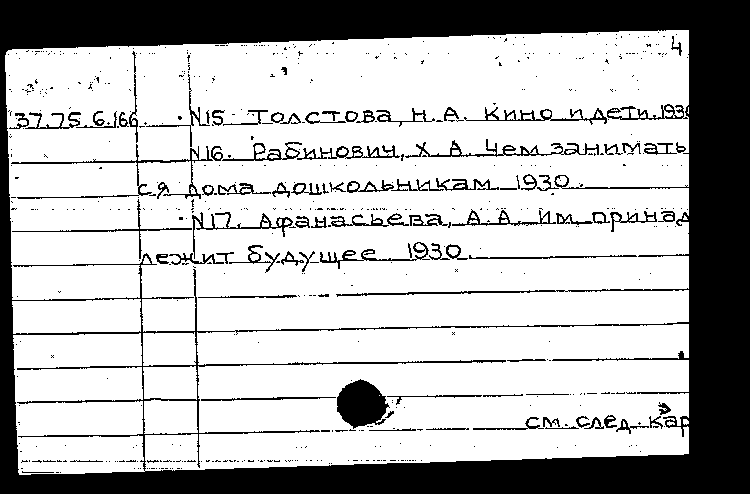 4
37.75.6.166. N15 Толстова, Н.А. Кино и дети. 1930
N16. Рабинович, Х.А. Чем занимать
ся дома дошкольникам 1930.
N17. Афанасьева, А.А. Им принад
лежит будущее 1930.
см. след. кар